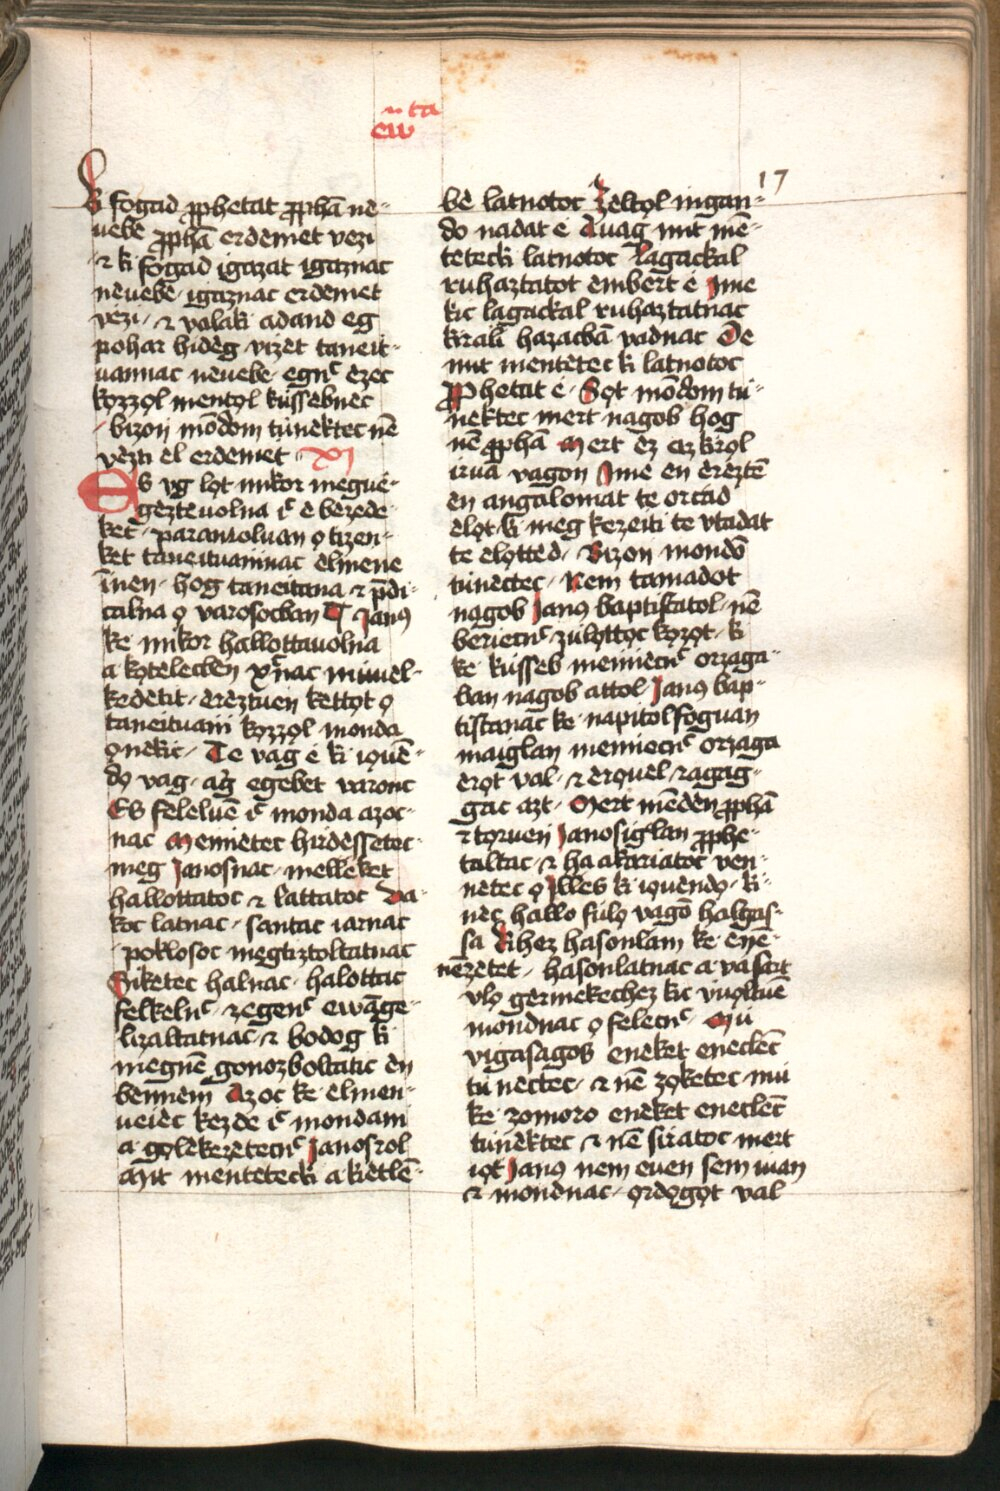 ew̄ ta
17
ki fogad ꝓphetat ꝓphā nė-
uėbė ꝓphā erdemet vėzi
⁊ ki fogad igazat igaznac
nėuėbė· igaznac erdemet
vėzi· ⁊ valaki adand eg
pohar hidėg vizėt taneit-
uańnac nėuėbė· egńc ėzec
kozzo̗l mentо̗l kussėbnec
· bizoń mōdom tu̇nėktec nē
vėzti ėl erdemėt· XI
Es vg lo̗t mikor meguė-
gėztėuolna ic̄ ė bėzedė-
ket· parančoluan o̗ tizen-
ket taneituańinac ėlmėne
īnen· hog taneitana ⁊ p̄di-
calna o̗ varosocban T Janꝯ
kė mikor hallottauolna
a ko̗telecbėn xꝰnac miuėl-
kėdetit· ėrėztuėn kėtto̗t o̗
taneituańi kozzo̗l monda
o̗nėkic· Te vag ė ki io̗uē-
do̗ vag· ag̀ egėbet variūc
Es fėlėluē ic̄ monda azoc-
nac Meńnietec hirdėssetec
meg Janosnac· mellėket
hallottatoc ⁊ lattatoc Va-
koc latnac· santac iarnac
· poklosoc megtiztoltatnac
Siketec halnac· halottac
fėlkėlnc̄· zegenc̄ ewāge-
lizaltatnac· ⁊ bodog ki
megnē gonozboltatic ēn
bennėm Azoc kė ėlmen-
uėiėc kėzdė ic̄ mondańi
a go̗lėkėzėtecnc̄ Janosrol
Mit mentėtecki a kietlē-
bė latnotoc Zėlto̗l ingan-
do nadat ė Auag mit mē-
tėtecki latnotoc Lagackal
ruhaztatot ėmbėrt ė Jme
kic lagackal ruhaztatnac
kiralı̄ hazacbā vadnac De
mit mentėtec ki latnotoc
ꝓphetat ė· So̗t mōdom tu̇-
nėktec mert nagob hog
nē ꝓphā Mert ez az kiro̗l
iruā vagon Jme en ėrėztē
en angalomat te orcad
ėlo̗t ki meg kėzeiti te vtadat
te ėlо̗ttėd· Bizoń mondō
tu̇nėctec· Nem tamadot
nagob Janꝯ baptistatol· nē
bėriecnc̄ zu̇lо̗ttoc ko̗zo̗t· ki
kė kussėb meńniecnc̄ orzaga-
ban nagob attol Janꝯ bap-
tistanac kė napitol foguan
maiglan meńniecnc̄ orzaga
ėro̗t val· ⁊ ėro̗uėl ⁊ agag-
gac azt· Mert mėnden ꝓphā
⁊ to̗ruėń Janosiglan ꝓphe-
taltac· ⁊ ha akariatoc ven-
netec o̗ Jlles ki io̗uėndo̗· ki-
nėc hallo fu̇lo̗ vagō halgas-
sa Kihėz hasonlam kė ėzė-
nėzėtėt· hasonlatnac a vasart
vlo̗ gėrmėkėchez kic vuо̗ltuē
mondnac o̗ fėlecnc̄· Mū
vigasagos enekėt enėclēc
tu̇ nėctec· ⁊ nē zо̗ketec· mu̇
kė zomoro enekėt enėclēc
tu̇nėktec ⁊ nē siratoc mert
io̗t Janꝯ nem ėuen sem iuan
⁊ mondnac· o̗rdo̗go̗t val